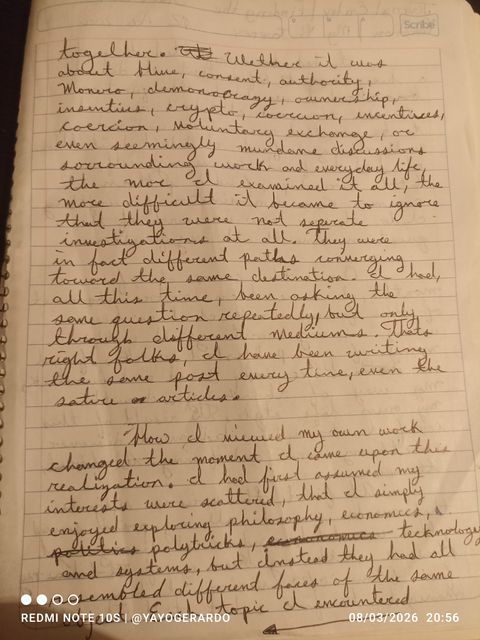 Scribe
together. Wether it was
about Hive, consent, authority,
Monero, demonocrazy, ownership,
insentives, crypto, coercion, incentives,
coercion, voluntary exchange, or
even seemingly mundane discussions
sorrounding work and everyday life,
the mor I examined it all, the
more difficult it became to ignore
that they were not seperate
investigations at all. They were
in fact different paths converging
toward the same destination. I had,
all this time, been asking the
same question repeatedly, but only
through different mediums. Thats
right folks, I have been writing
the same post every time, even the
satire articles.
How I viewed my own work
changed the moment I came upon this
realization. I had first assumed my
interests were scattered, that I simply
enjoyed exploring philosophy, economics,
politics polytricks, economics technology
and systems, but instead they had all
resembled different faces of the same
Each topic I encountered
REDMI NOTE 10S | @YAYOGERARDO
08/03/2026 20:56